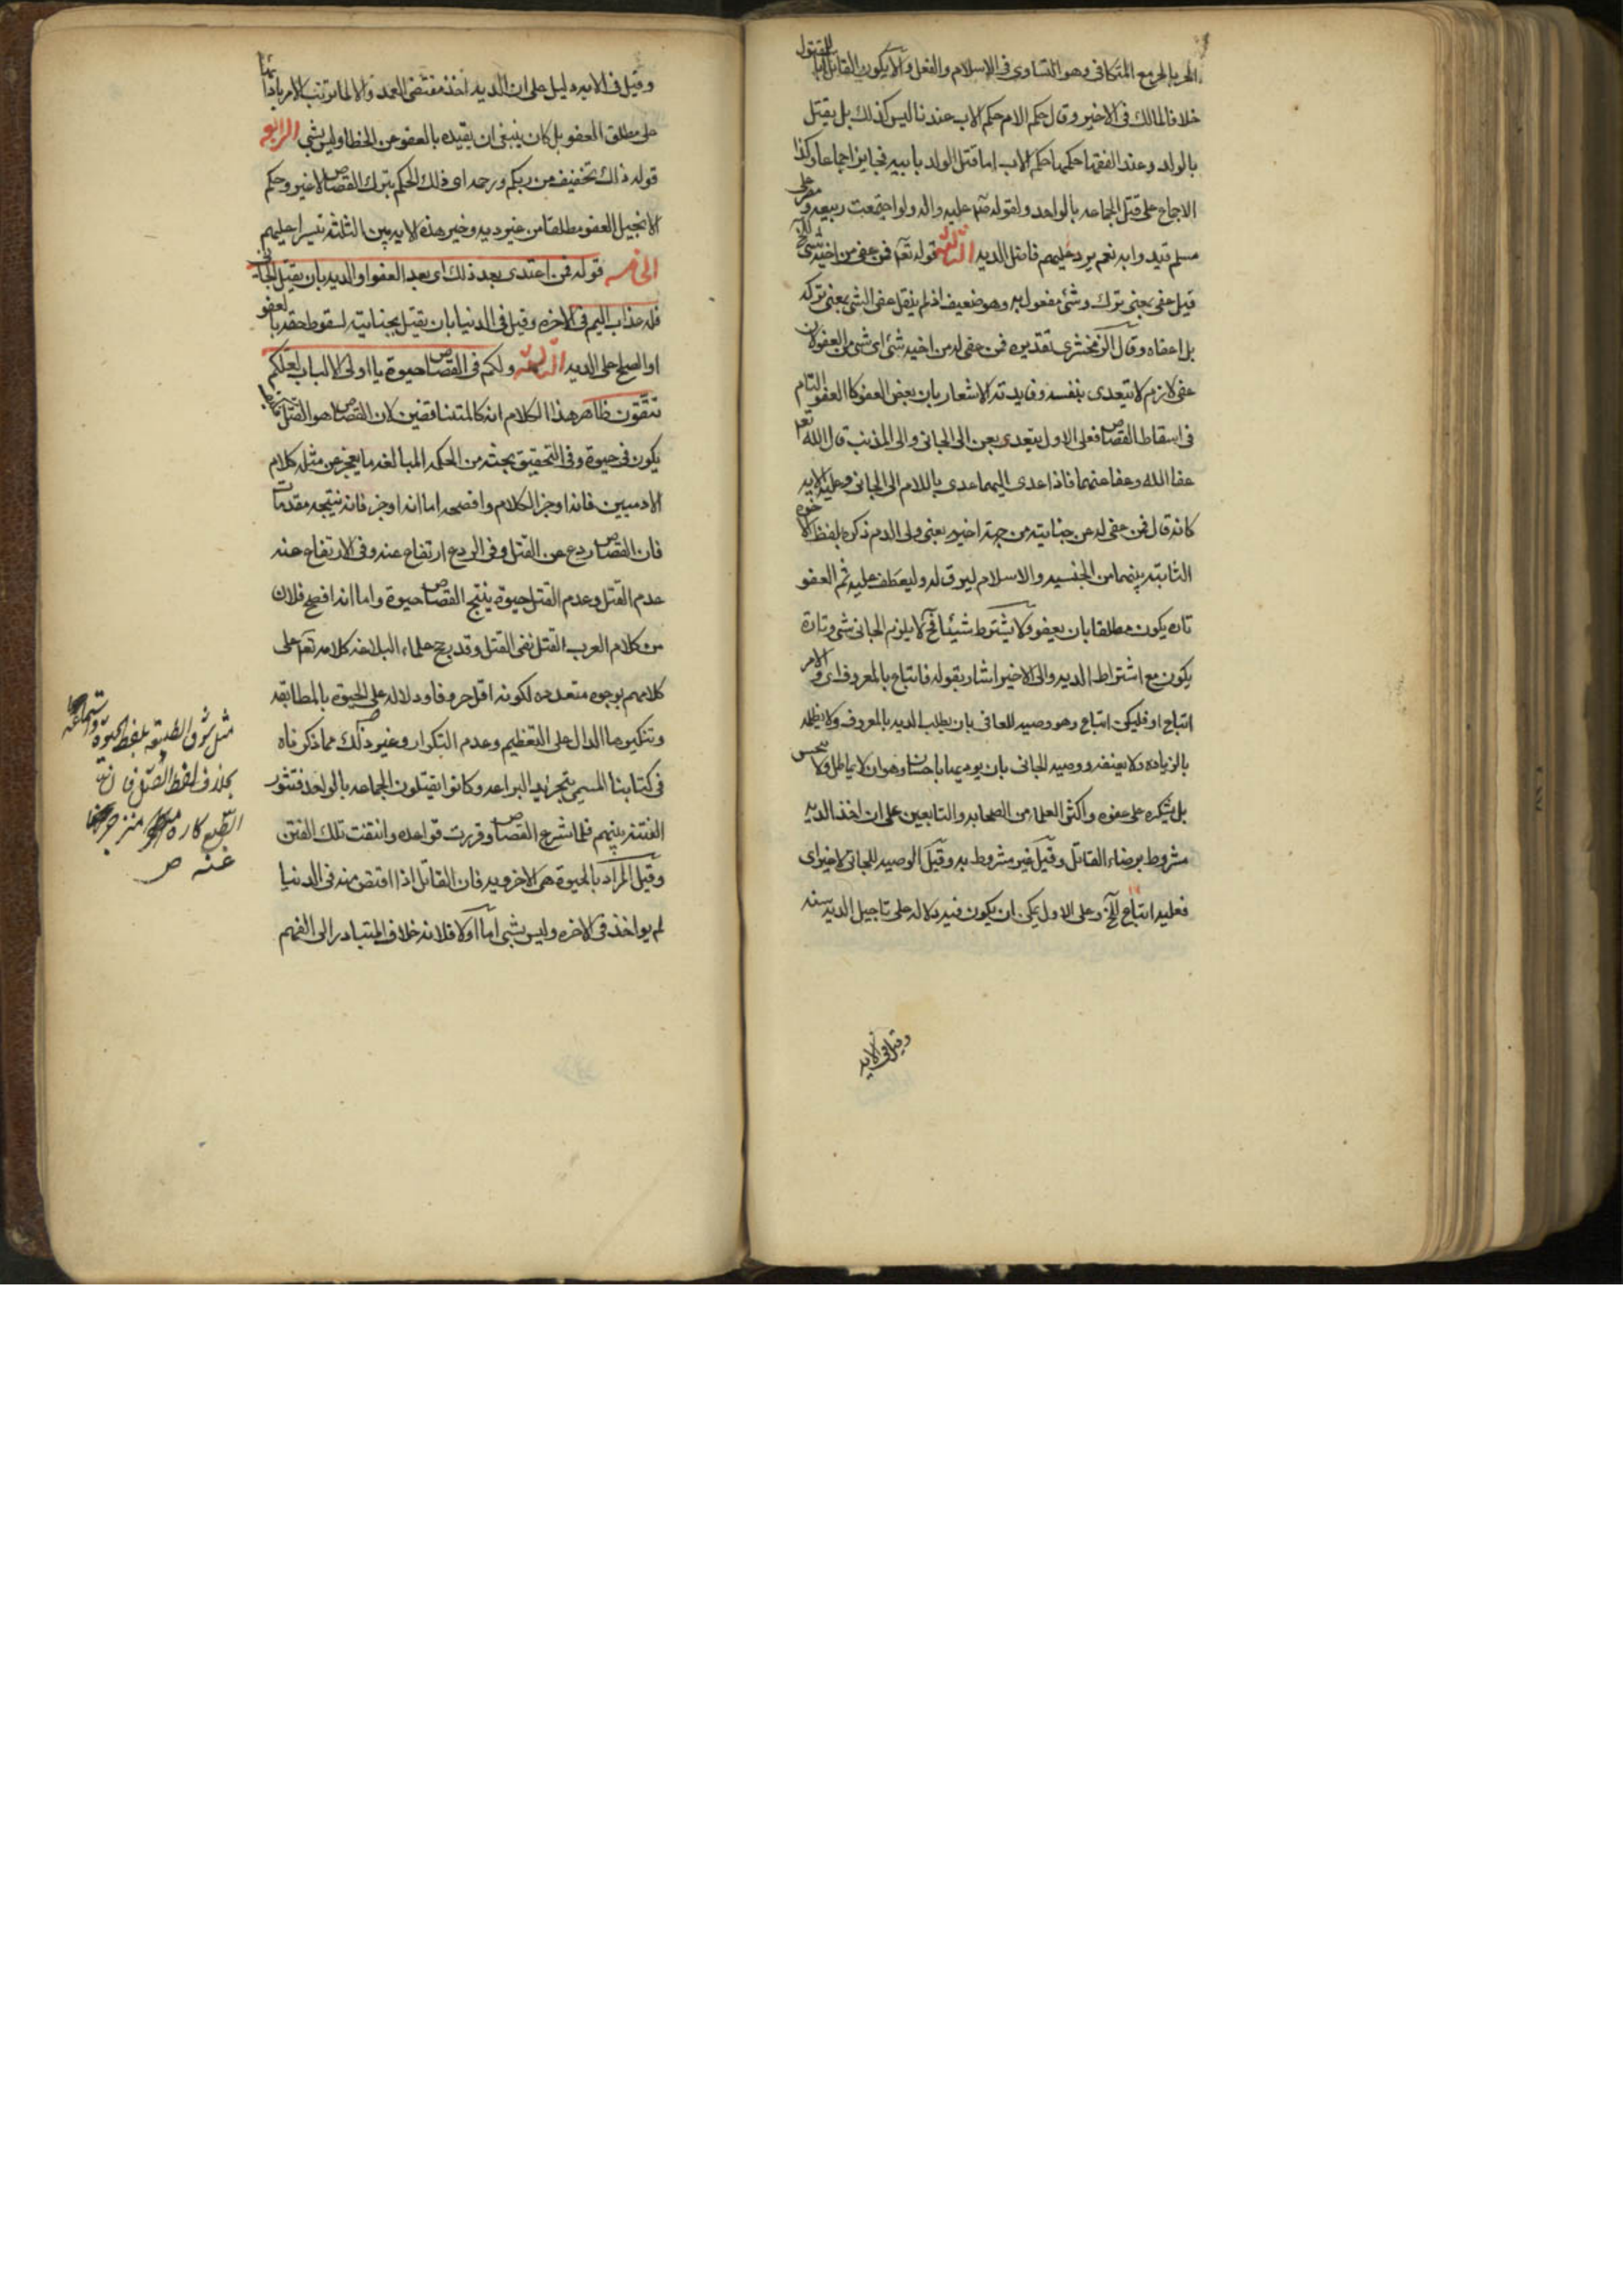 الحر بالحر مع المتكافى وهو التساوى فى الاسلام والفعل وألا يكون القاتل أبا للمقتول
خلافا لمالك فى الاخير وقال حكم الام حكم الاب عندنا ليس كذلك بل يقتل
بالولد وعند الفقها حكمها حكم الاب اما قتل الولد بابيه فجايز اجماعا وكذا
الاجماع على قتل الجماعه بالواحد ولقوله صلى عليه واله ولو اجتمعت ربيعه ومضر على
مسلم قيد وا به نعم يرد عليهم فاضل الديه الثالثة قوله تعالى فمن عفى من اخيه شئ الخ
قيل عفى بمعنى ترك وشئ مفعول به وهو ضعيف اذ لم ينقل عفى الشئ بمعنى تركه
بل اعفاه وقال الزمخشرى تقديره فمن عفى له من اخيه شئ اى شئ من العفو لان
عفى لازم لا يتعدى بنفسه وفايدته الاشعار بان بعض العفو كالعفو التام
فى اسقاط القصاص فعلى الاول يتعدى بعن الى الجانى والى الذنب قال الله تعالى
عفا الله وعفا عنهما فاذا عدى اليهما عدى باللام الى الجانى وعليه الايه
كانه قال فمن عفى له عن جنايته من جهة اخيه يعنى ولى الدم ذكره بلفظ الاخوه
الثابته بينهما من الجنسيه والاسلام ليرق له وليعطف عليه ثم العفو
تاره يكون مطلقا بان يعفو ولا يشترط شيئا فح لا يلزم الجانى شئ وتارة
يكون مع اشتراط الديه والى الاخير اشار بقوله فاتباع بالمعروف اى والامر
اتباع او فليكن اتباع وهو وصيه للعافى بان يطلب الديه بالمعروف ولا يظلمه
بالزياده ولا يعنفه ووصيه للجانى بان يوديها باحسان وهو ان لا يماطل ولا يبخس
بل يشكره على عفوه واكثر العلماء من الصحابه والتابعين على ان اخذ الديه
مشروط برضاء القاتل وقيل غير مشروط به وقيل الوصيه للجانى لا غير اى
فعليه اتباع الخ وعلى الاول يمكن ان يكون فيه دلاله على تاجيل الديه سنه
وقيل فى الايه
وقيل فى الايه دليل على ان الديه احد مقتضى العمد والا لما ترتب الامر باداء
على مطلق العفو بل كان ينبغى ان يقيده بالعفو عن الخطا وليس بشئ الرابعه
قوله ذلك تخفيف من ربكم ورحمه اى ذلك الحكم بترك القصاص لا غير وحكم
الانجيل العفو مطلقا من غير ديه وخير هذه الايه بين الثلثه تيسيرا عليهم
الخامسه قوله فمن اعتدى بعد ذلك اى بعد العفو او الديه بان يقتل الجانى
فله عذاب اليم فى الاخره وقيل فى الدنيا بان يقتل بجنايته لسقوط حقه بالعفو
او الصلح على الديه السادسة ولكم فى القصاص حيوة يا اولى الالباب لعلكم
تتقون ظاهر هذا الكلام انه كالمتناقضين لان القصاص هو القتل
يكون فى حيوة وفى التحقيق تحته من الحكمه المبالغه ما يعجز عن مثله كلام
الادميين فانه اوجز الكلام وافصحه اما انه اوجز فانه نتيجه مقدمات
فان القصاص ردع عن القتل وفى الردع ارتفاع عنه وفى الارتفاع عنه
عدم القتل وعدم القتل حيوة ينتج القصاص حيوة واما انه افصح فلان
من كلام العرب القتل نفى القتل وقد رجح علماء البلاغه كلامه تعالى على
كلامهم بوجوه متعدده لكونه اقل حروفا ودلاله على الحيوة بالمطابقه
وتنكيرها الدال على التعظيم وعدم التكرار وغير ذلك مما ذكرناه
فى كتابنا المسمى بتجريد البراعه وكانوا يقتلون الجماعه بالواحد فتثور
الفتنه بينهم فلما شرع القصاص وقررت قواعده وانتفت تلك الفتن
وقيل المراد بالحيوة هى الاخرويه فان القاتل اذا اقتص منه فى الدنيا
لم يواخذ فى الاخره وليس بشئ اما اولا فلانه خلاف المتبادر الى الفهم
بخلاف لفظ القتل فان
عنه ص